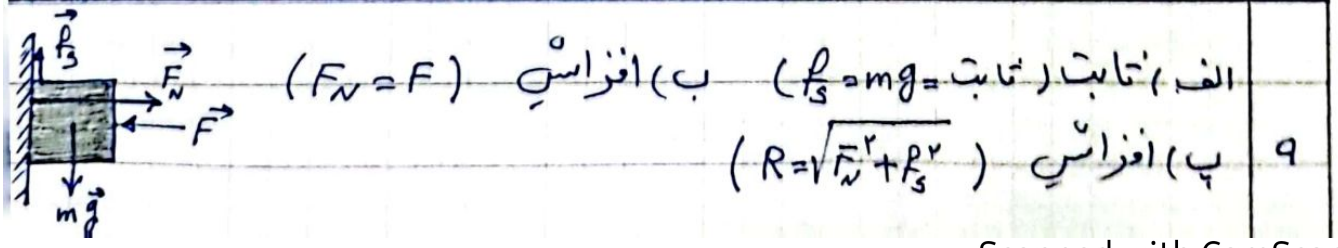 الف) ثابت (ثابت = f⃗s = mg) ب) افزایش (F_N = F)
پ) افزایش (R = √F_N^۲ + f_s^۲)
۹
f⃗s
F⃗_N
F⃗
mg⃗
Scanned with CamScan